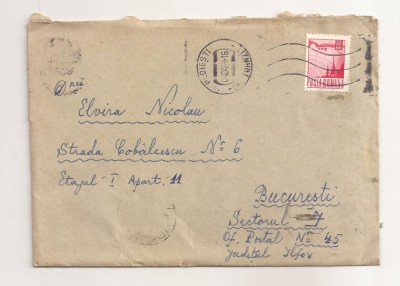 PLOIEȘTI
POSTA ROMANA
Elvira Nicolau
Strada Cobălcescu Nº 6
Etajul I Apart. 11
București
Sectorul 7
Of. Postal Nº 45
Județul Ilfov